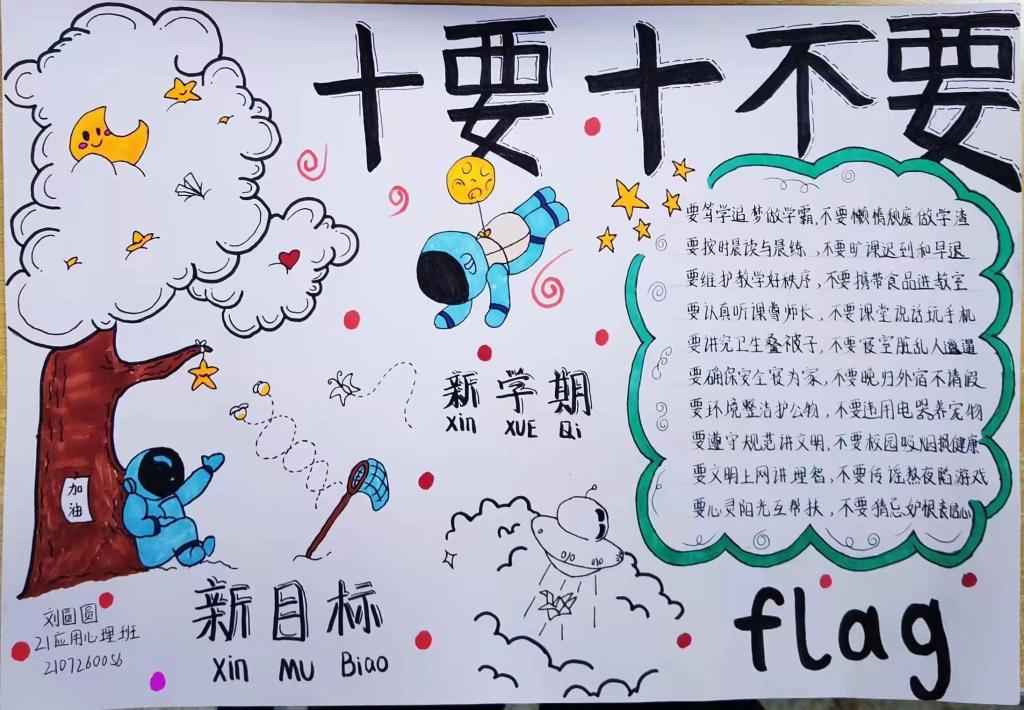 十要十不要
要笃学追梦做学霸,不要懒惰颓废做学渣
要按时晨读与晨练,不要旷课迟到和早退
要维护教学好秩序,不要携带食品进教室
要认真听课尊师长,不要课堂说话玩手机
要讲究卫生叠被子,不要寝室脏乱人邋遢
要确保安全寝为家,不要晚归外宿不请假
要环境整洁护公物,不要违用电器养宠物
要遵守规范讲文明,不要校园吸烟损健康
要文明上网讲理智,不要传谣熬夜陷游戏
要心灵阳光互帮扶,不要猜忌妒恨丧信心
新学期
xin XUE Qi
加油
新目标
xin MU Biao
flag
刘圆圆
21应用心理班
2107260056